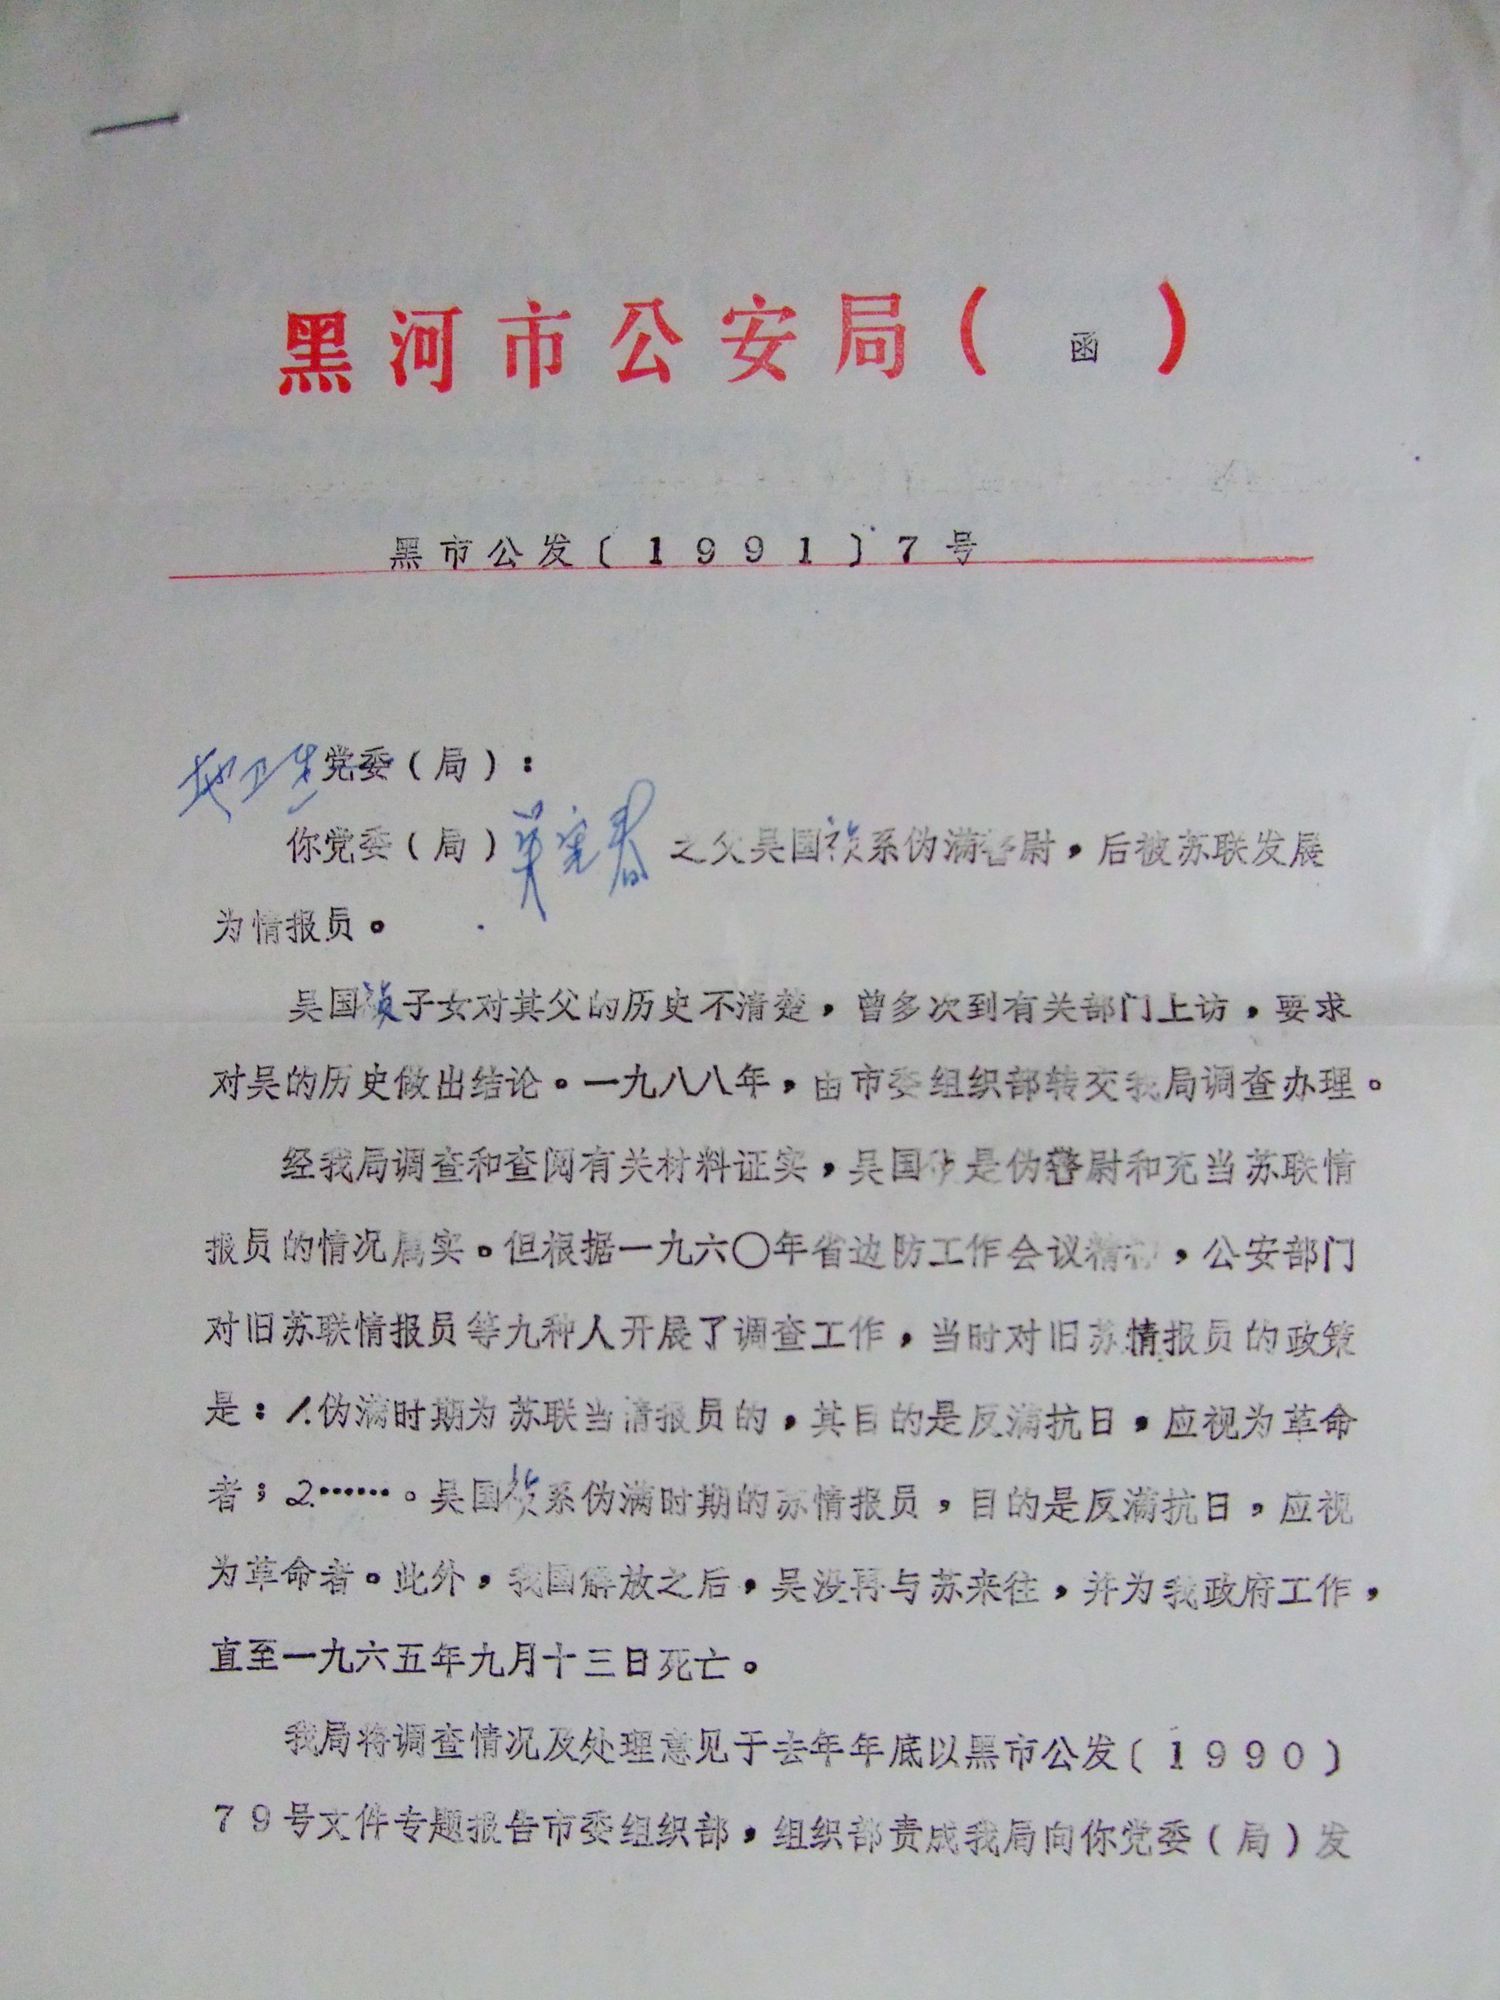 黑河市公安局（函）
黑市公发〔1991〕7号
地卫生党委（局）：
你党委（局）吴宪春之父吴国祯系伪满警尉，后被苏联发展
为情报员。
吴国祯子女对其父的历史不清楚，曾多次到有关部门上访，要求
对吴的历史做出结论。一九八八年，由市委组织部转交我局调查办理。
经我局调查和查阅有关材料证实，吴国是伪警尉和充当苏联情
报员的情况属实。但根据一九六〇年省边防工作会议精神，公安部门
对旧苏联情报员等九种人开展了调查工作，当时对旧苏情报员的政策
是：1.伪满时期为苏联当情报员的，其目的是反满抗日，应视为革命
者；2.……。吴国祯系伪满时期的苏情报员，目的是反满抗日，应视
为革命者。此外，我国解放之后，吴没再与苏来往，并为我政府工作，
直至一九六五年九月十三日死亡。
我局将调查情况及处理意见于去年年底以黑市公发〔1990〕
79号文件专题报告市委组织部，组织部责成我局向你党委（局）发